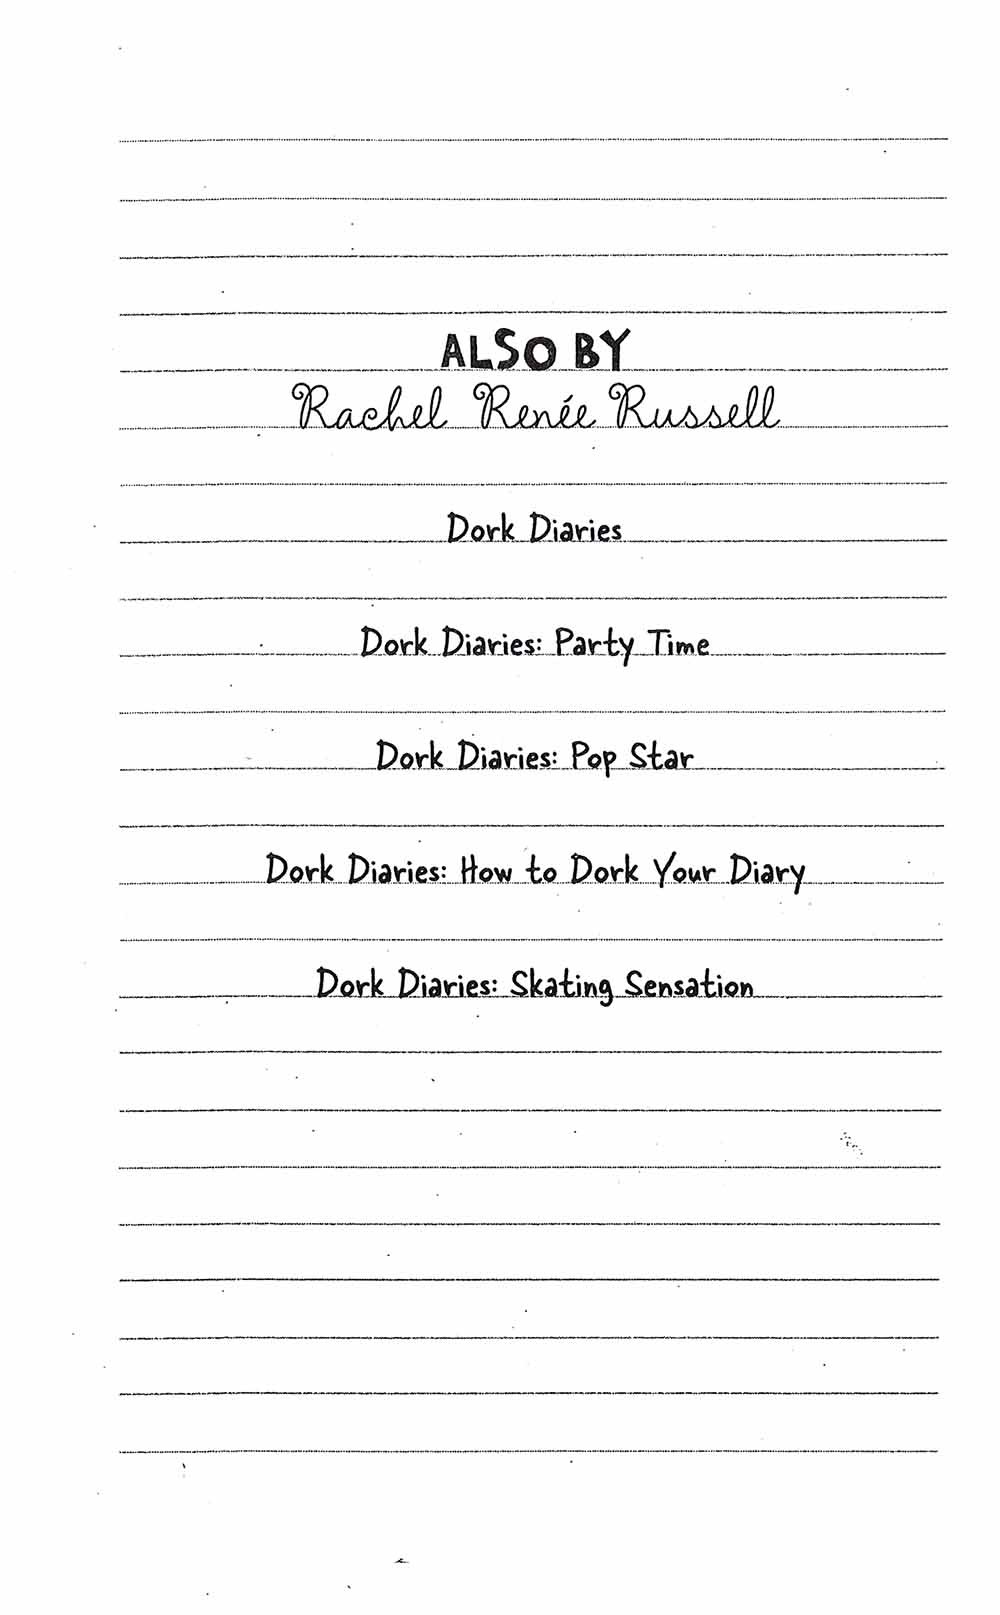 ALSO BY
Rachel Renée Russell
Dork Diaries
Dork Diaries: Party Time
Dork Diaries: Pop Star
Dork Diaries: How to Dork Your Diary
Dork Diaries: Skating Sensation